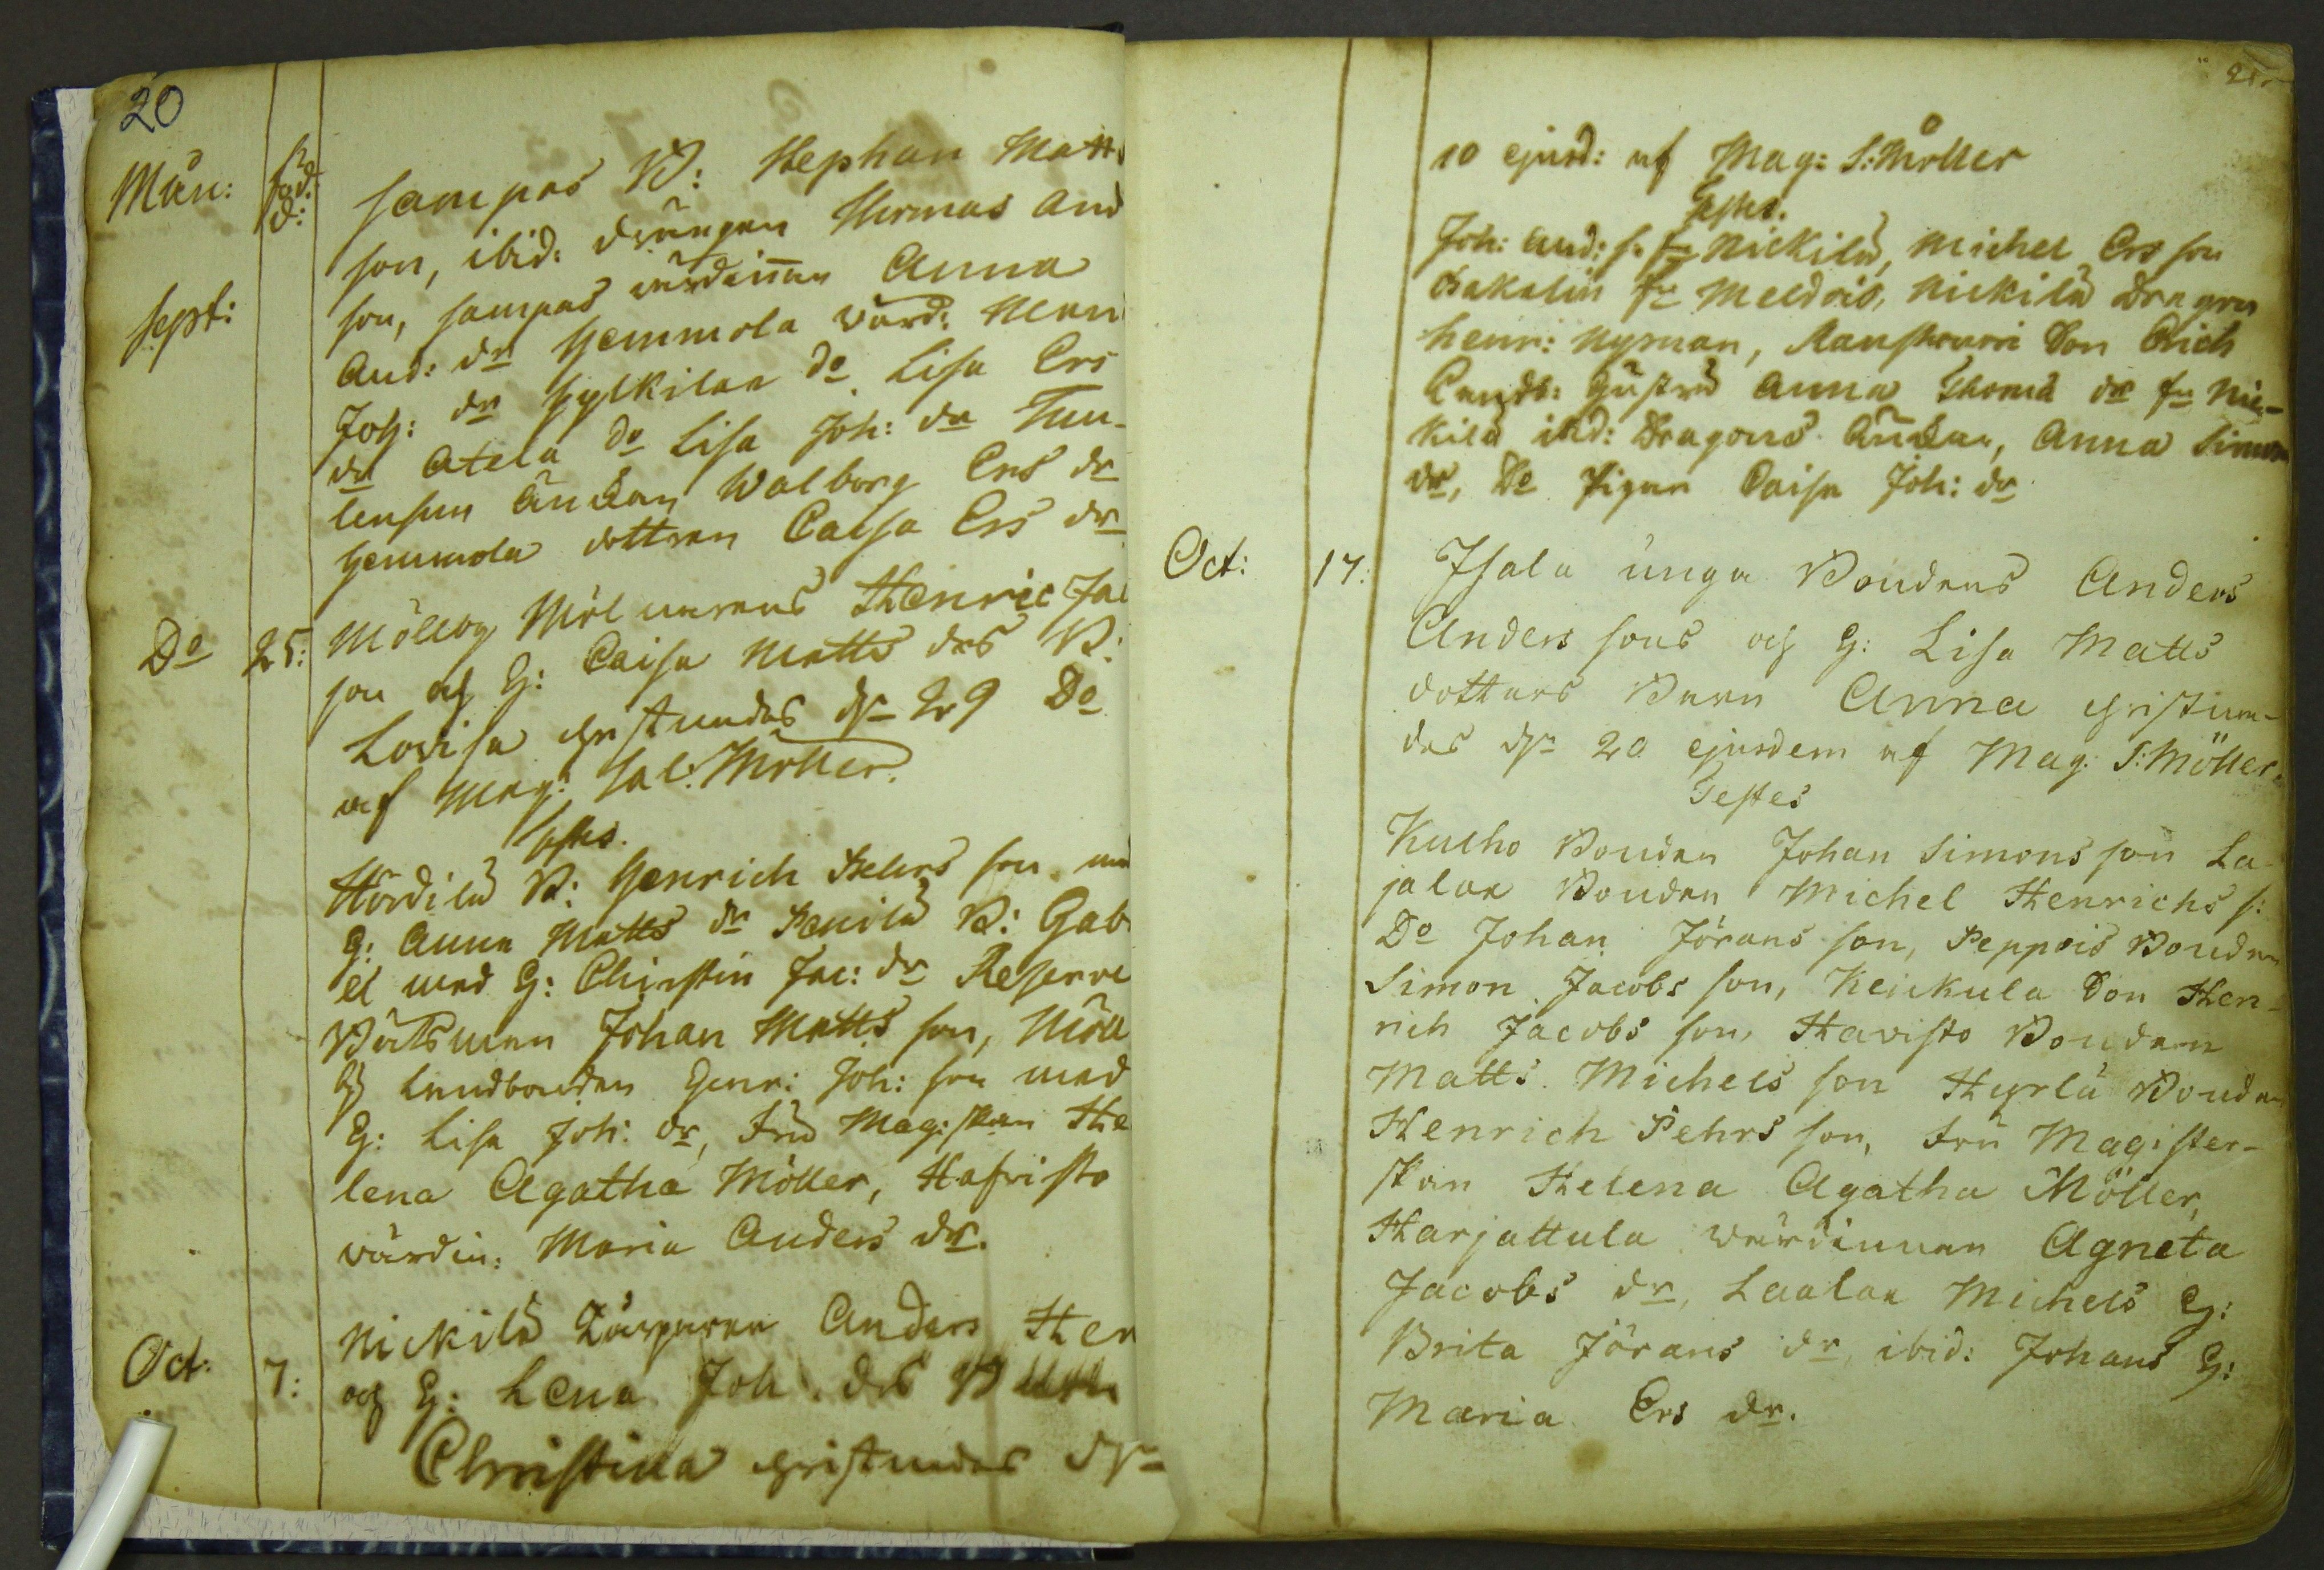 20
Mån: föd. d:
Sampas B: Stephan Matts
son, ibid: drängen Thomas And
son, Sampas värdinnan Anna
Sept:
And: dr Hemmola värd: Mari
Joh: dr Hylkilax Do Lisa Ers
dr Atela do Lisa Joh: dr Tun-
lensuu Änckan Walborg Ers dr
Hemmola dottren Caisa Ers dr
Do 25: Mölleby Möl narens Henric Jac
son och H: Caisa Matts drs B:
Lovisa christnades d. 29 Do
af Mag: Sal: Möller.
Testes.
Härdilä B: Henrich Pehrs son med
H: Anna Matts dr Penilä B: Gab
el med H: Chirstin Jac: dr Reserve
Båtsman Johan Matts son, Möll
by Landbonden Henr: Joh: son med
H: Lisa Joh: dr, Fru Mag:skan He
lena Agatha Möller, Hafvisto
värdin: Maria Anders dr.
Oct: 7: Nickilä Anders Hen
och H: Lena Joh: drs Barn
Christina christnades d.
21.
10 ejusd: af Mag: S: Möller
Testes.
Joh: And: s. fr Nickilä, Michel Ers son
Pakalin fr Meldois, Nickilä Dragon
Henr: Nyman, Son Erich
Hustru Anna Thoma dr fr Nic-
kilä ibid: Dragons Änckan, Anna Simons
dr, Do Pigan Caisa Joh: dr
Oct: 17: Isala unga Bondens Anders
Anders sons och H: Lisa Matts
dotters Barn Anna christna-
des d. 20 ejusdem af Mag: S: Möller.
Testes
Kulho Bonden Johan Simons son La-
jalax Bonden Michel Henrichs s:
Do Johan Jörans son, Peppois Bonden
Simon Jacobs son, Keickula Son Hen-
rich Jacobs son, Havisto Bonden
Matts Michels son Hyrlä Bonden
Henrich Pehrs son, Fru Magister-
skan Helena Agatha Möller,
Harjattula värdinnan Agneta
Jacobs dr, Laalax Michels H:
Brita Jörans dr, ibid: Johans H:
Maria Ers dr.